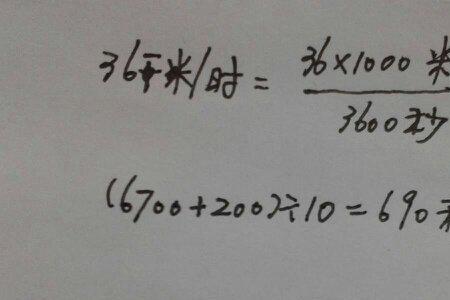 36千米/时 = 36×1000米/3600秒
(6700+200)÷10=690